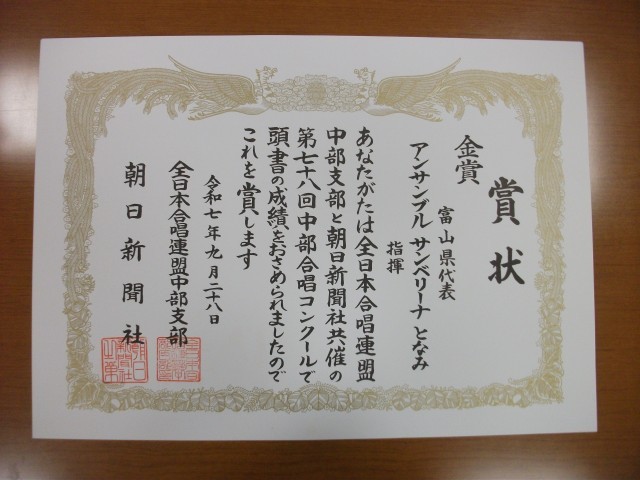 賞状
金賞
富山県代表
アンサンブル サンベリーナ となみ
指揮
あなたがたは全日本合唱連盟
中部支部と朝日新聞社共催の
第七十八回中部合唱コンクールで
頭書の成績をおさめられましたので
これを賞します
令和七年九月二十八日
全日本合唱連盟中部支部
朝日新聞社